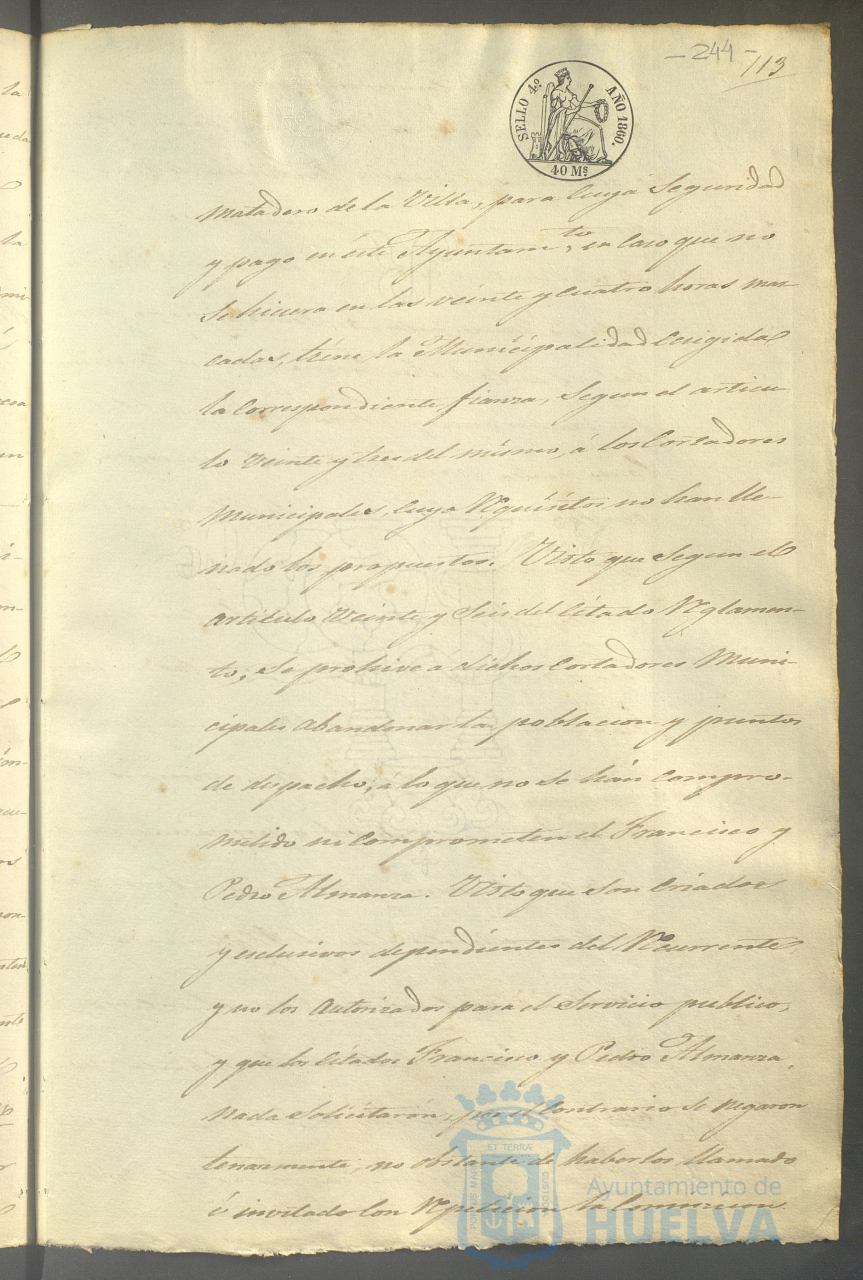 - 244 -
113
SELLO 4º AÑO 1860.
40 Ms
matadero de la Villa, para cuya Seguridad
y pago en éste Ayuntamto, en caso que no
se hiciera en las veinte y cuatro horas mar-
cadas, tiene la Municipalidad ecsigida
la correspondiente fianza, Segun el articu-
lo veinte y tres del mismo, á los Cortadores
Municipales, cuyo Requisito no han lle-
nado los propuestos. Visto que segun el
articulo Veinte y Seis del citado Reglamen-
to, se prohive a dichos Cortadores Muni-
cipales abandonar la poblacion y puntos
de despacho, a lo que no se hán compro-
metido ni comprometen el Francisco y
Pedro Almanza. Visto que son Criados
y esclusivos dependientes del Recurrente,
y no los autorizados para el Servicio publico,
y que los citados Francisco y Pedro Almanza,
nada solicitarón, por el contrario se negaron
tenazmente, no obstante de haberlos llamado
é invitado con Repeticion la Comision
PORTUS MARIS ET TERRÆ CUSTODIA
Ayuntamiento de
HUELVA